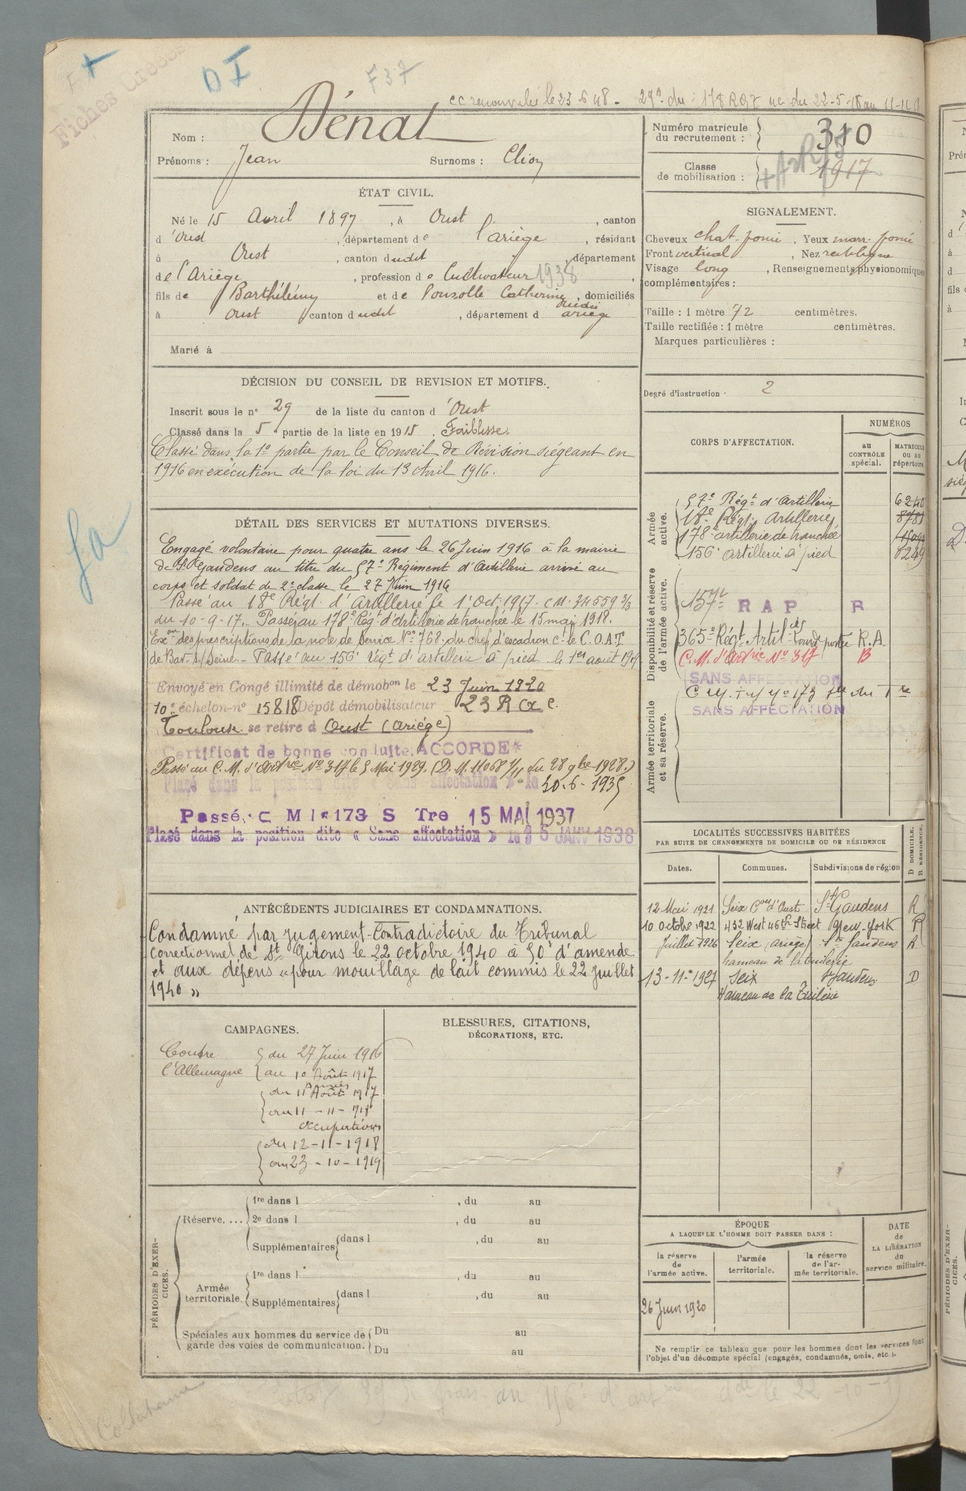 DI
F37
cc renouvelée le 23-6-48 - 29e du 178 RA
Nom : Dénat
Prénoms : Jean Surnoms :
ÉTAT CIVIL.
Né le 15 Avril 1897, à Oust, canton
d'Oust, département de l'Ariège, résidant
à Oust, canton dudit, département
de l'Ariège, profession de Cultivateur 1938
fils de Barthélémy et de Pouzolle Catherine, domiciliés
à Oust canton dudit, département dudit ariège
Marié à
DÉCISION DU CONSEIL DE REVISION ET MOTIFS.
Inscrit sous le n° 29 de la liste du canton d'Oust
Classé dans la 5 partie de la liste en 1915. Faiblesse.
Classé dans la 1e partie par le Conseil de Révision siégeant en
1916 en exécution de la loi du 13 Avril 1916.
DÉTAIL DES SERVICES ET MUTATIONS DIVERSES.
Engagé volontaire pour quatre ans le 26 Juin 1916 à la mairie
de St Gaudens au titre du 57e Régiment d'Artillerie arrivé au
corps et soldat de 2e classe le 27 Juin 1916
Passé au 18e Régt d'Artillerie le 1 Oct. 1917. C.M. 34559 3/3
du 10-9-17. Passé au 178e Régt d'Artillerie de tranchée le 15 mai 1918.
des prescriptions de la note de service N° 768 du chef d'escadron ct le C.O.A.T.
de Bar s/ Seine - Passé au 156e régt d'artillerie à pied le 1er août 1919
Envoyé en Congé illimité de démobon le 23 Juin 1920
10e échelon n° 15818 Dépôt démobilisateur 23 R a c.
Toulouse se retire à Oust (Ariège)
Certificat de bonne conduite ACCORDÉ
Passé au C.M. d'Artrie N° 317 le 8 Mai 1929. (D.M. 11068 1/11 du 28 9bre 1928.)
Placé dans la affectation » le 20.6-1935
Passé C M I n° 173 S Tre 15 MAI 1937
Placé dans la position dite « Sans affectation » le 5 JANV 1938
ANTÉCÉDENTS JUDICIAIRES ET CONDAMNATIONS.
Condamné par jugement Contradictoire du Tribunal
Correctionnel de St Girons le 22 octobre 1940 à 50f d'amende
et aux dépens « pour mouillage de lait commis le 22 juillet
1940 »
CAMPAGNES.
Contre l'Allemagne
du 27 Juin 1916
au 10 Août 1917
du 11 Août 1917
au 11-11-918
occupation
du 12-11-1918
au 23-10-1919
BLESSURES, CITATIONS,
DÉCORATIONS, ETC.
PÉRIODES D'EXERCICES.
Réserve....
1re dans l , du au
2e dans l , du au
Supplémentaires dans l , du au
Armée territoriale.
1re dans l , du au
Supplémentaires dans l , du au
Spéciales aux hommes du service de garde des voies de communication.
Du au
Du au
Numéro matricule du recrutement : 310
Classe de mobilisation : 1917
SIGNALEMENT.
Cheveux chat. foncé. Yeux marr. foncé
Front vertical, Nez rectiligne
Visage long, Renseignements physionomiques
complémentaires :
Taille : 1 mètre 72 centimètres.
Taille rectifiée : 1 mètre centimètres.
Marques particulières :
Degré d'instruction : 2
CORPS D'AFFECTATION.
NUMÉROS
AU CONTRÔLE spécial.
MATRICULE OU AU répertoire.
Armée active.
57e Régt d'Artillerie 6240
18e Régt Artillerie 8781
178e artillerie de tranchée
156e artillerie à pied 8249
Disponibilité et réserve de l'armée active.
157e R A P R
365e Régt Artie Lourd portée R.A.
C.M. d'Artrie N° 317 B
SANS AFFECTATION
C M I n° 173 Sn du Tre
SANS AFFECTATION
Armée territoriale et sa réserve.
LOCALITÉS SUCCESSIVES HABITÉES
PAR SUITE DE CHANGEMENTS DE DOMICILE OU DE RÉSIDENCE
Dates. Communes. Subdivisions de région D DOMICILE. R RÉSIDENCE.
12 Mai 1921 Seix Con d'Oust St Gaudens R
10 octobre 1922 432 West 46th Street New-York R
Juillet 1926 Seix (ariège) St Gaudens R
hameau de la
13-11-1927 Seix St Gaudens D
Hameau de la
ÉPOQUE
A LAQUELLE L'HOMME DOIT PASSER DANS :
la réserve de l'armée active.
l'armée territoriale.
la réserve de l'armée territoriale.
DATE de LA LIBÉRATION du service militaire.
26 Juin 1920
Ne remplir ce tableau que pour les hommes dont les services font
l'objet d'un décompte spécial (engagés, condamnés, omis, etc.).